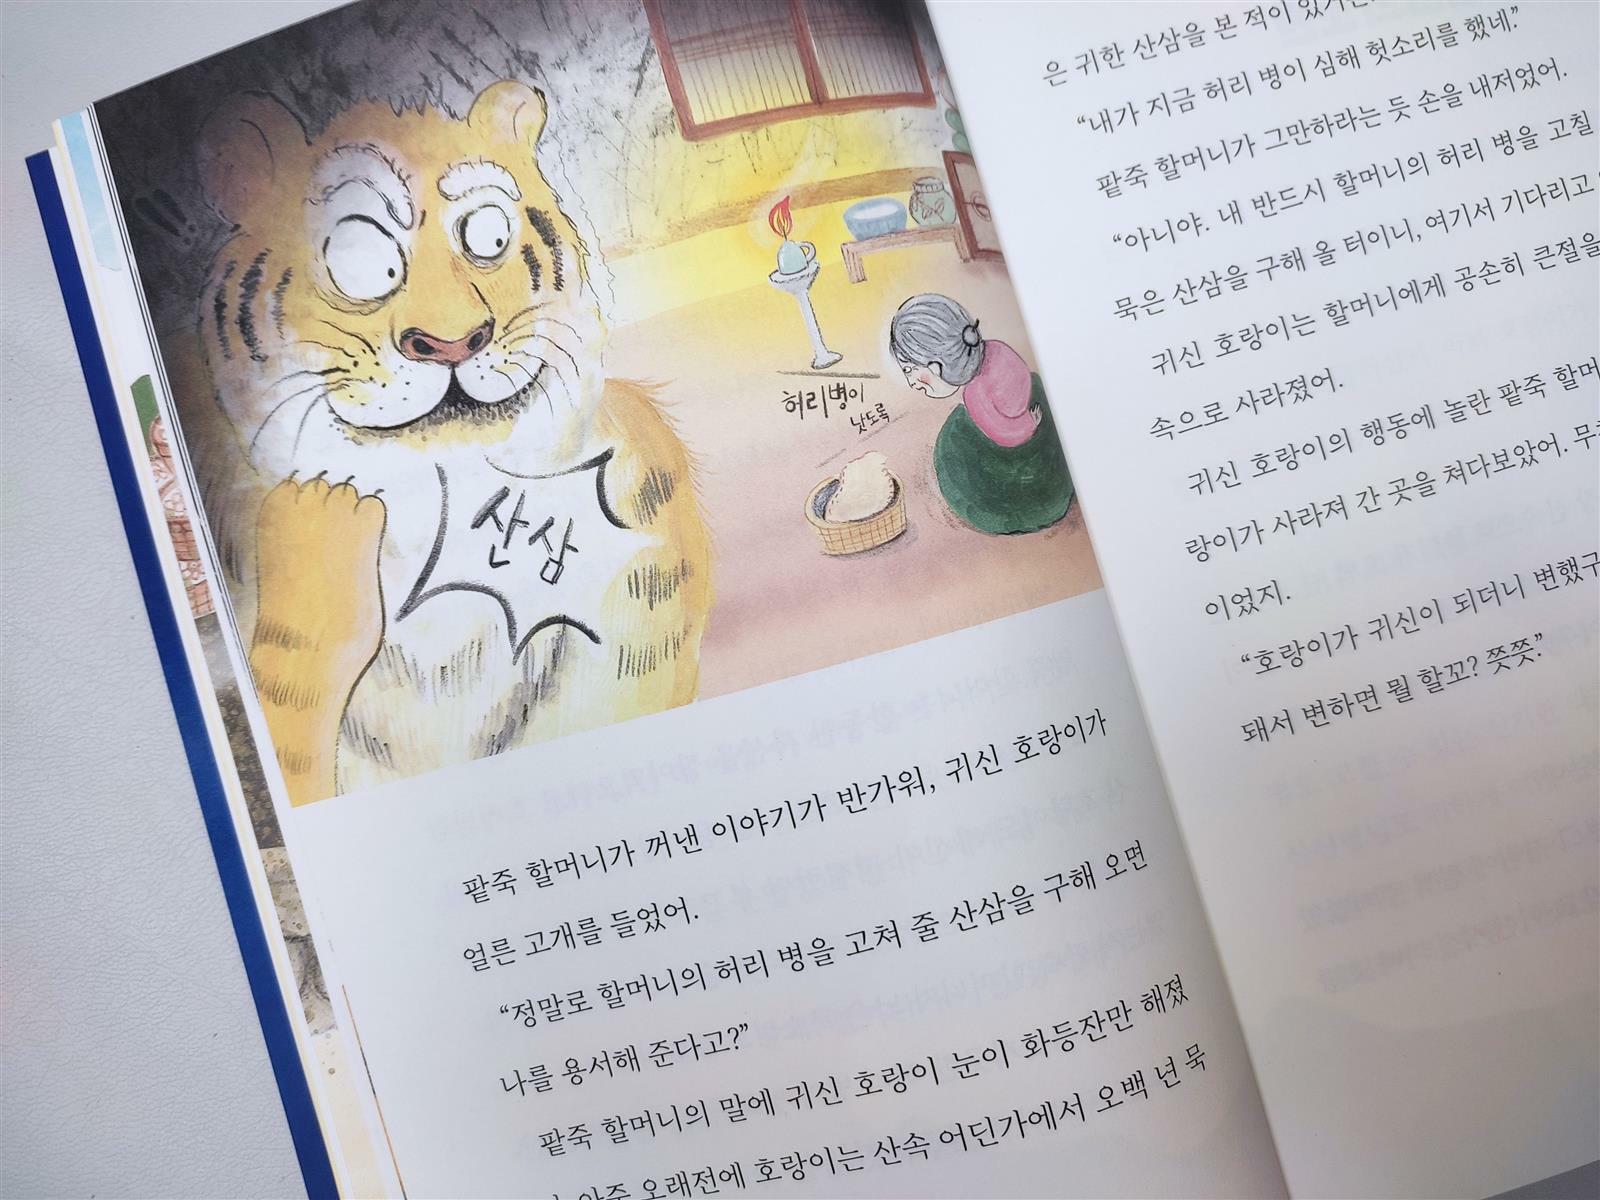 허리병이
낫도록
산삼
팥죽 할머니가 꺼낸 이야기가 반가워, 귀신 호랑이가
얼른 고개를 들었어.
“정말로 할머니의 허리 병을 고쳐 줄 산삼을 구해 오면
나를 용서해 준다고?”
팥죽 할머니의 말에 귀신 호랑이 눈이 화등잔만 해졌
아주 오래전에 호랑이는 산속 어딘가에서 오백 년 묵
은 귀한 산삼을 본 적이
“내가 지금 허리 병이 심해 헛소리를 했네.”
팥죽 할머니가 그만하라는 듯 손을 내저었어.
“아니야. 내 반드시 할머니의 허리 병을 고칠
묵은 산삼을 구해 올 터이니, 여기서 기다리고
귀신 호랑이는 할머니에게 공손히 큰절을
속으로 사라졌어.
귀신 호랑이의 행동에 놀란 팥죽
랑이가 사라져 간 곳을 쳐다보았어.
이었지.
“호랑이가 귀신이 되더니 변했구
돼서 변하면 뭘 할꼬? 쯧쯧.”